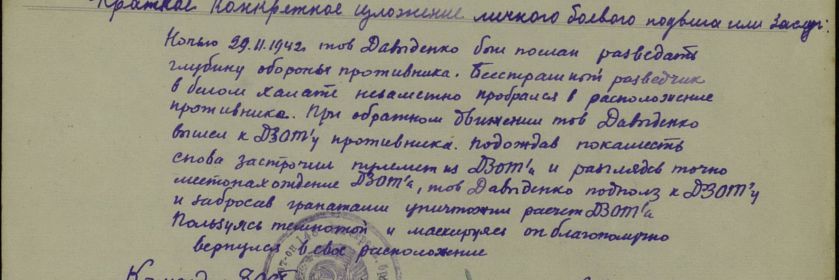 Краткое конкретное изложение личного боевого подвига или заслуг:
Ночью 29.11.1942г тов Давыденко был послан разведать
глубину обороны противника. Бесстрашный разведчик
в белом халате незаметно пробрался в расположение
противника. При обратном движении тов Давыденко
вышел к ДЗОТ'у противника. Подождав покаместь
снова застрочил пулемет из ДЗОТ'а и разглядев точно
местонахождение ДЗОТ'а, тов Давыденко подполз к ДЗОТ'у
и забросав гранатами уничтожил расчет ДЗОТ'а
Пользуясь темнотой и маскируясь он благополучно
вернулся в свое расположение